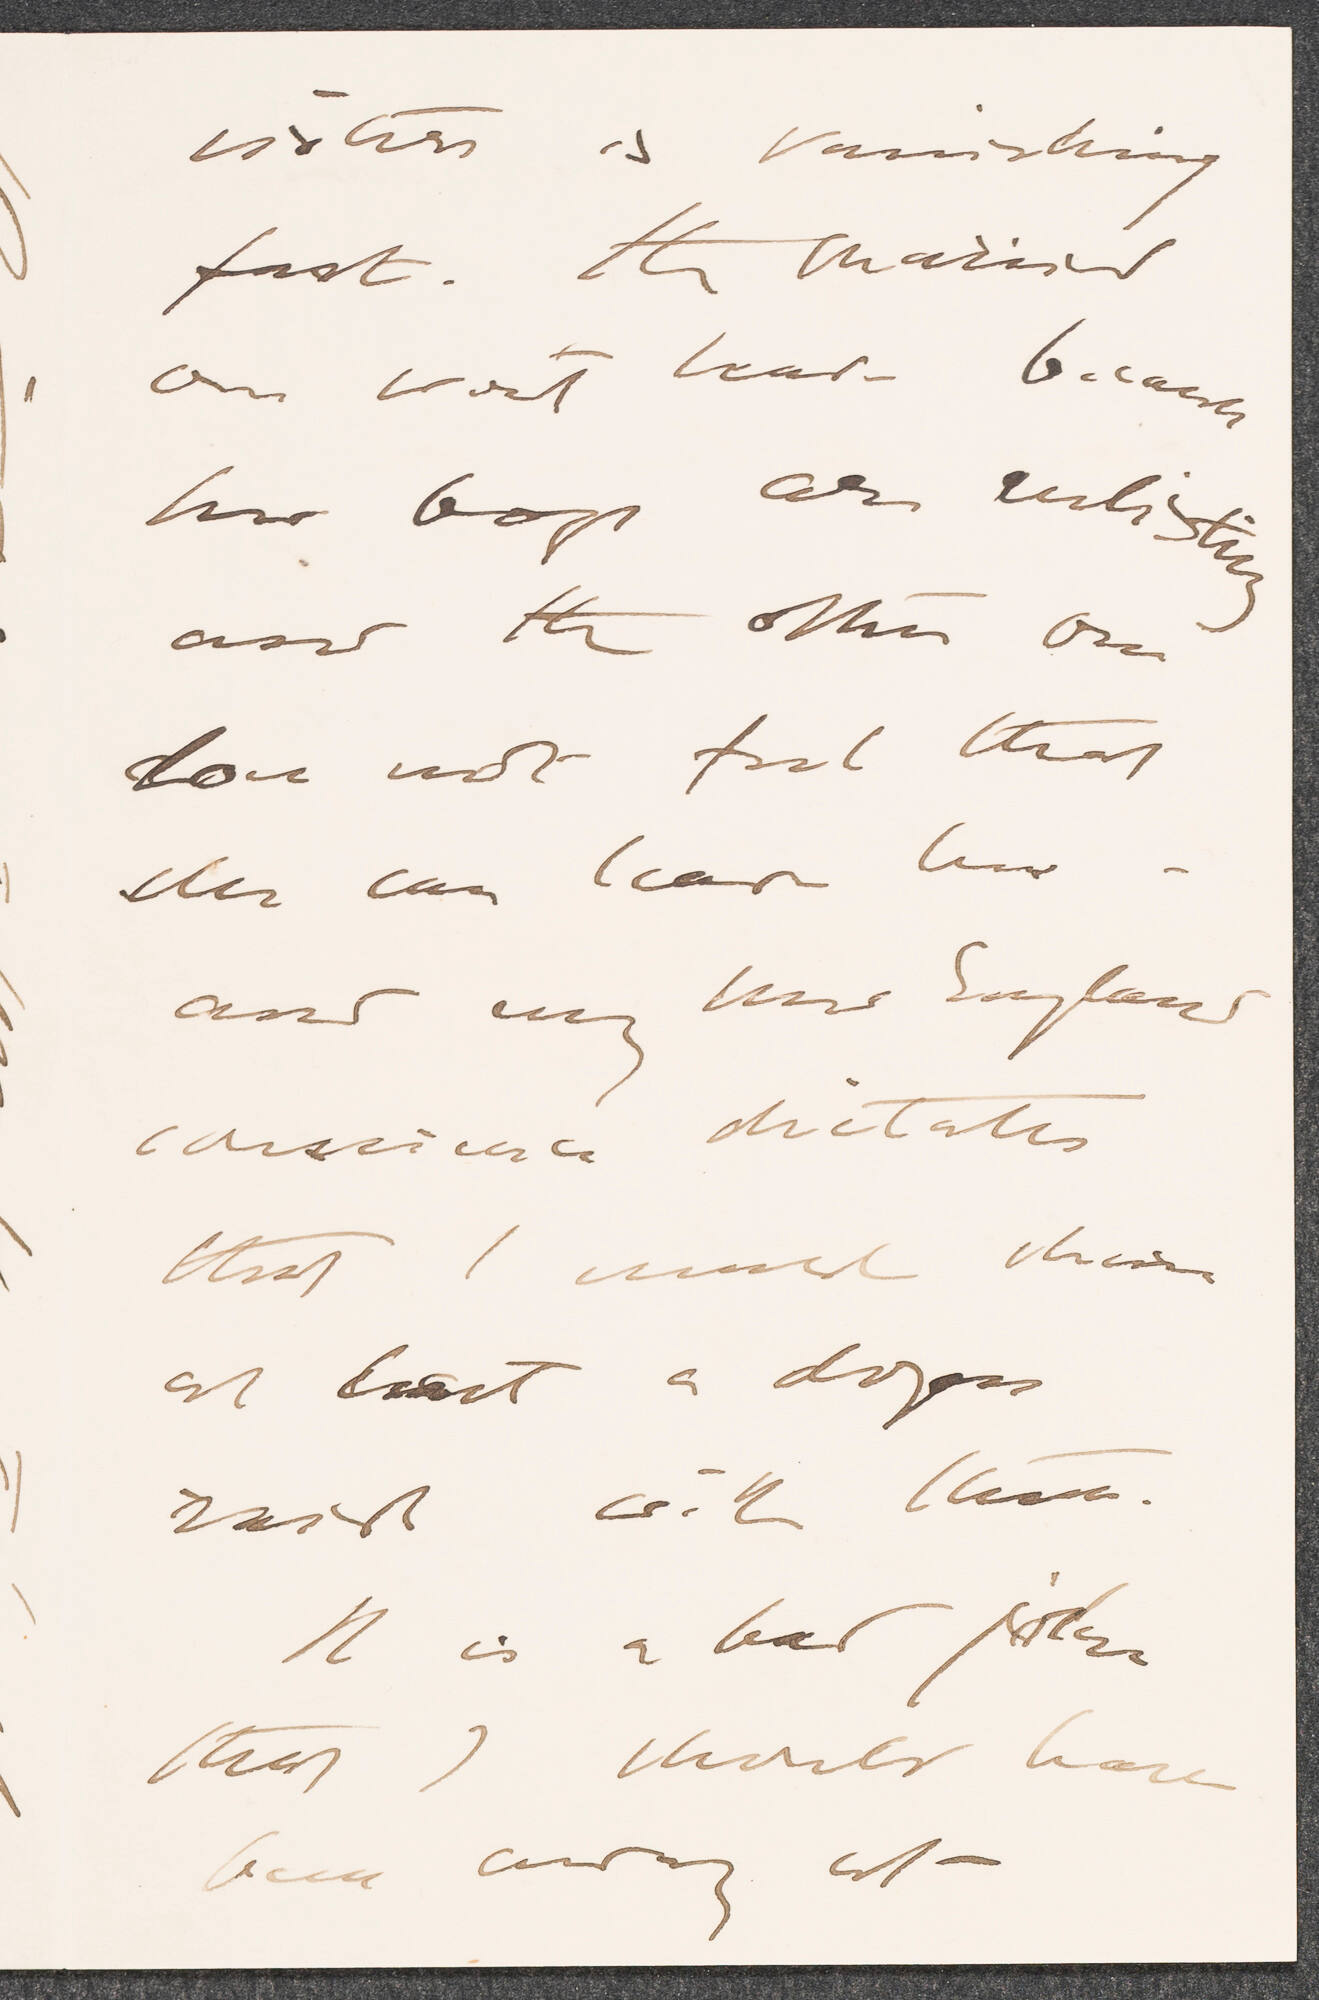 sisters is vanishing
fast. The married
one won't leave because
her boys are enlisting
and the other one
does not feel that
she can leave her -
and my New England
conscience dictates
that I must stay
at least a dozen
with them.
It is a bad joke
that I should have
been away at -